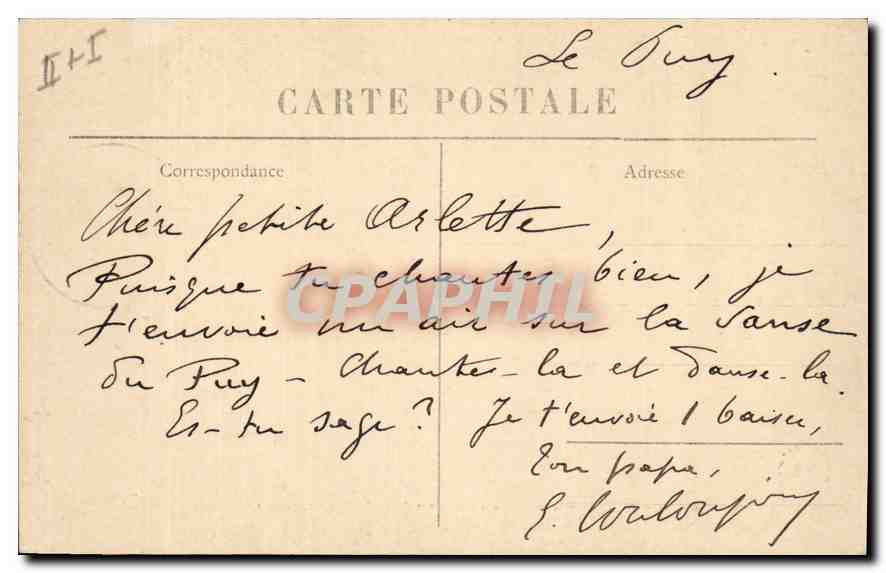 II + I
Le Puy.
CARTE POSTALE
Correspondance
Adresse
Chère petite Arlette,
Puisque tu chantes bien, je
t'envoie un air sur la danse
du Puy - chantes-la et danse-la.
Es-tu sage? Je t'envoie 1 baiser,
ton papa,
CPAPHIL